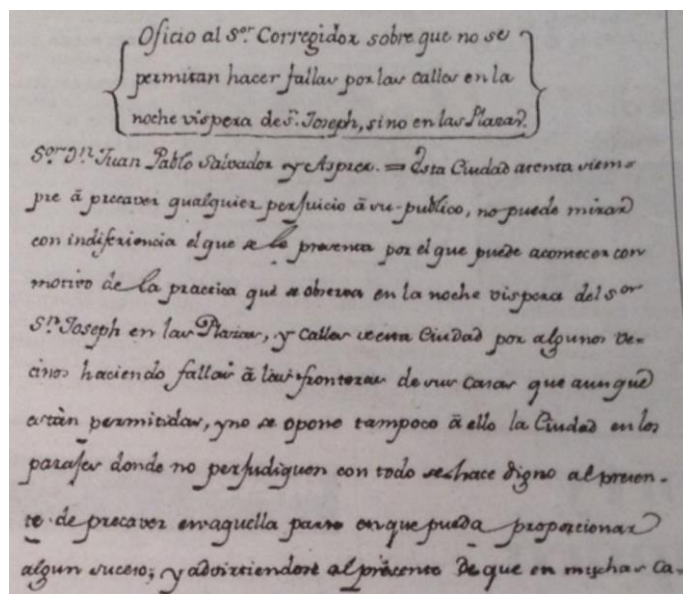 Oficio al S.or Corregidor sobre que no se
permitan hacer fallas por las calles en la
noche vispera de S.n Joseph, sino en las Plazas.
S.or D.n Juan Pablo Salvador y Asprer. = Esta Ciudad atenta siem-
pre â precaver qualquier perjuicio â su publico, no puede mirar
con indiferiencia el que se le presenta por el que puede acometer con
motivo de la practica que se observa en la noche vispera del S.or
S.n Joseph en las Plazas, y Calles de esta Ciudad por algunos ve-
cinos haciendo fallas â las fronteras de sus casas que aunque
estàn permitidas, y no se opone tampoco â ello la Ciudad en los
parajes donde no perjudiquen con todo se hace digno al presen-
te de precaver en aquella parte en que pueda proporcionar
algun suceso; y advirtiendose al presente de que en muchas ca-